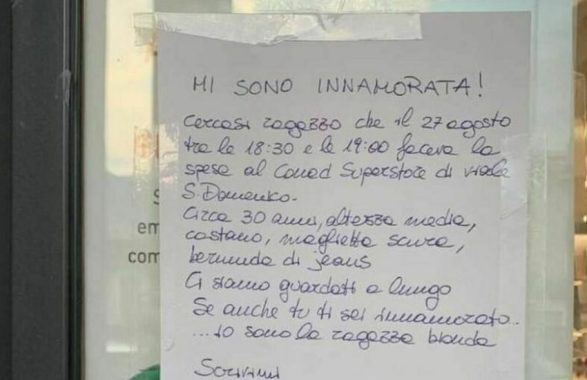 MI SONO INNAMORATA!
Cercasi ragazzo che il 27 agosto
tra le 18:30 e le 19:00 faceva la
spesa al Conad Superstore di viale
S. Domenico.
Circa 30 anni, altezza media,
castano, maglietta scura,
bermuda di jeans
Ci siamo guardati a lungo
Se anche tu ti sei innamorato..
...io sono la ragazza bionda
Scrivimi
S
em
com